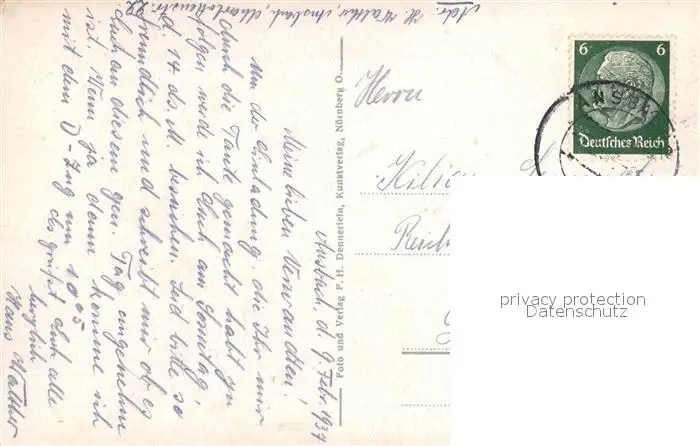 Adr. H. Walther, Ansbach,
Ansbach, d. 9. Febr. 1937
Meine lieben Verwandten!
Um der Einladung, die Ihr mir
durch die Tante gemacht habt zu
folgen werde ich Euch am Sonntag,
d. 14. ds. M. besuchen. Seid bitte so
freundlich und schreibt mir ob es
Euch an diesem gen. Tag angenehm
ist. Wenn ja dann komme ich
mit dem D-Zug um 10
Es grüßt Euch alle
herzlich
Hans Walther
Foto und Verlag F. H. Dennerlein, Kunstverlag, Nürnberg O.
Herrn
Kilian
6 6
Deutsches Reich
ANSBA
privacy protection
Datenschutz